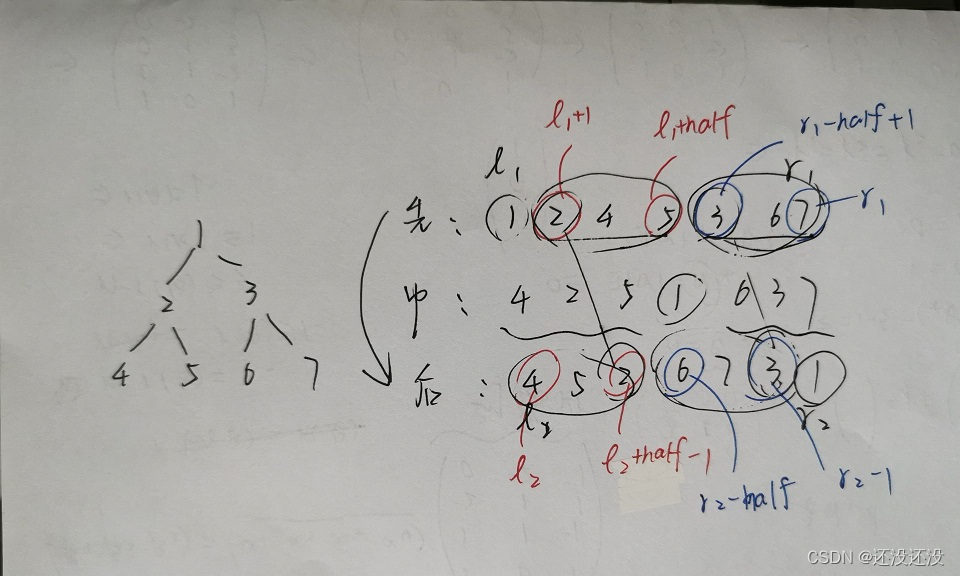 l₁+1 l₁+half r₁-half+1
l₁ r₁
先: 1 2 4 5 3 6 7 r₁
1
中: 4 2 5 1 6 3 7
2 3
后: 4 5 2 6 7 3 1
4 5 6 7
l₂ r₂
l₂ l₂+half-1 r₂-half r₂-1
CSDN @还没还没